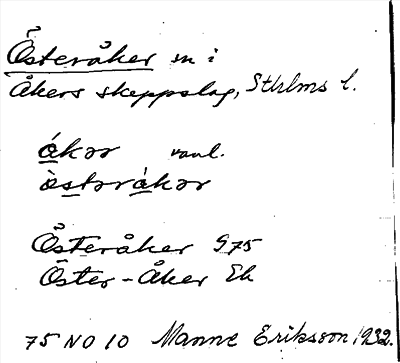 Österåker sn i
Åkers skeppslag, Sthlms l.
ákər vanl.
òstəråkər
Österåker G75
Öster-Åker Ek
75 NO 10 Manne Eriksson 1932.